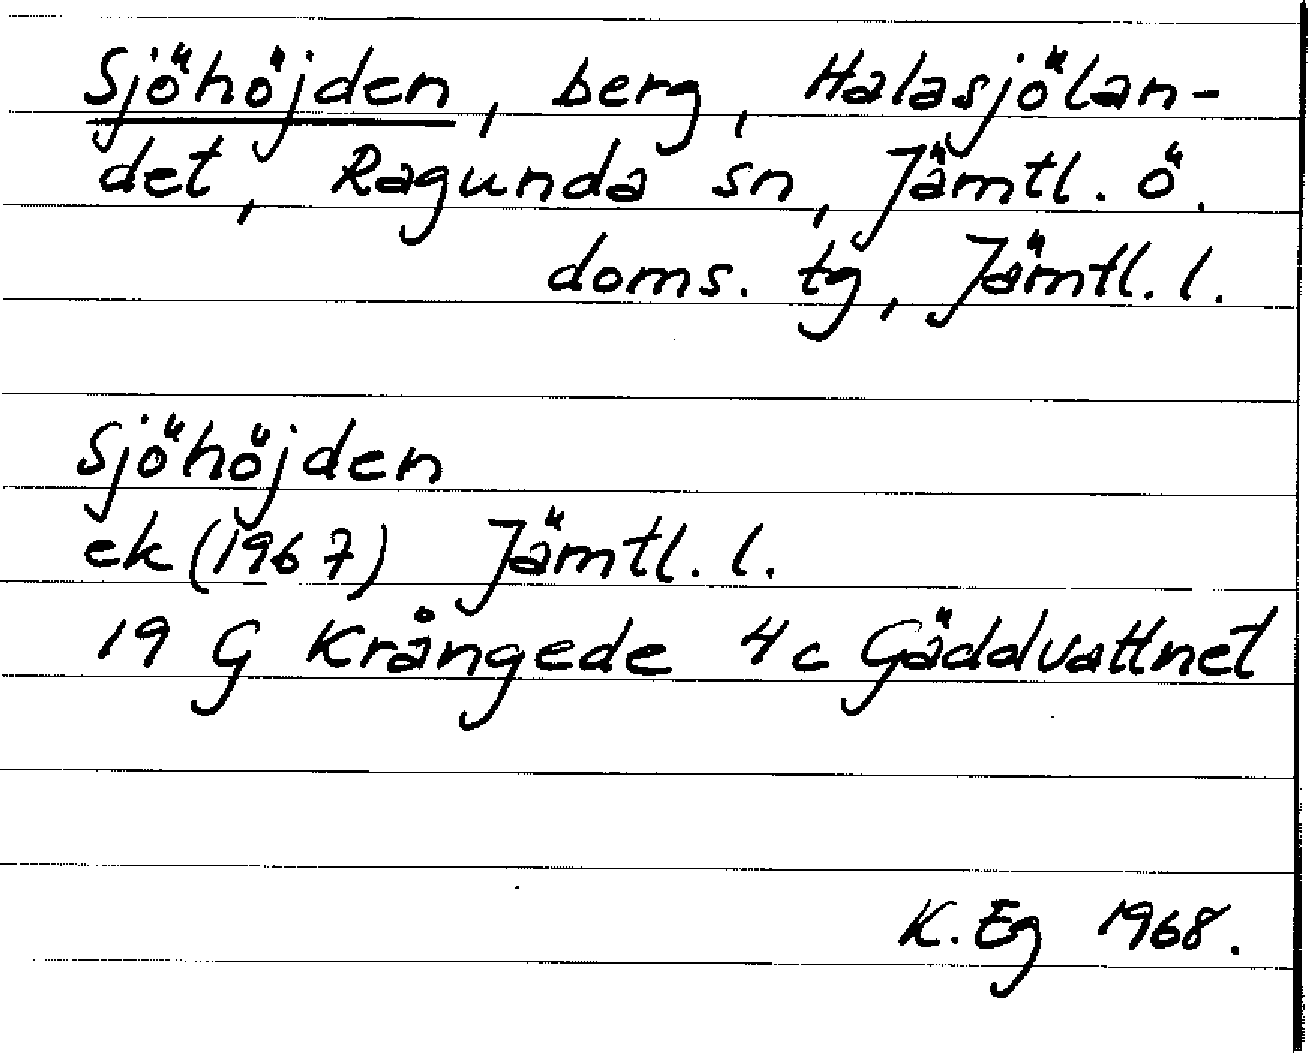 Sjöhöjden, berg, Halasjölan-
det, Ragunda sn, Jämtl. ö.
doms. tg, Jämtl. l.
Sjöhöjden
ek (1967) Jämtl. l.
19 G Krångede 4c Gäddvattnet
K. Eg 1968.